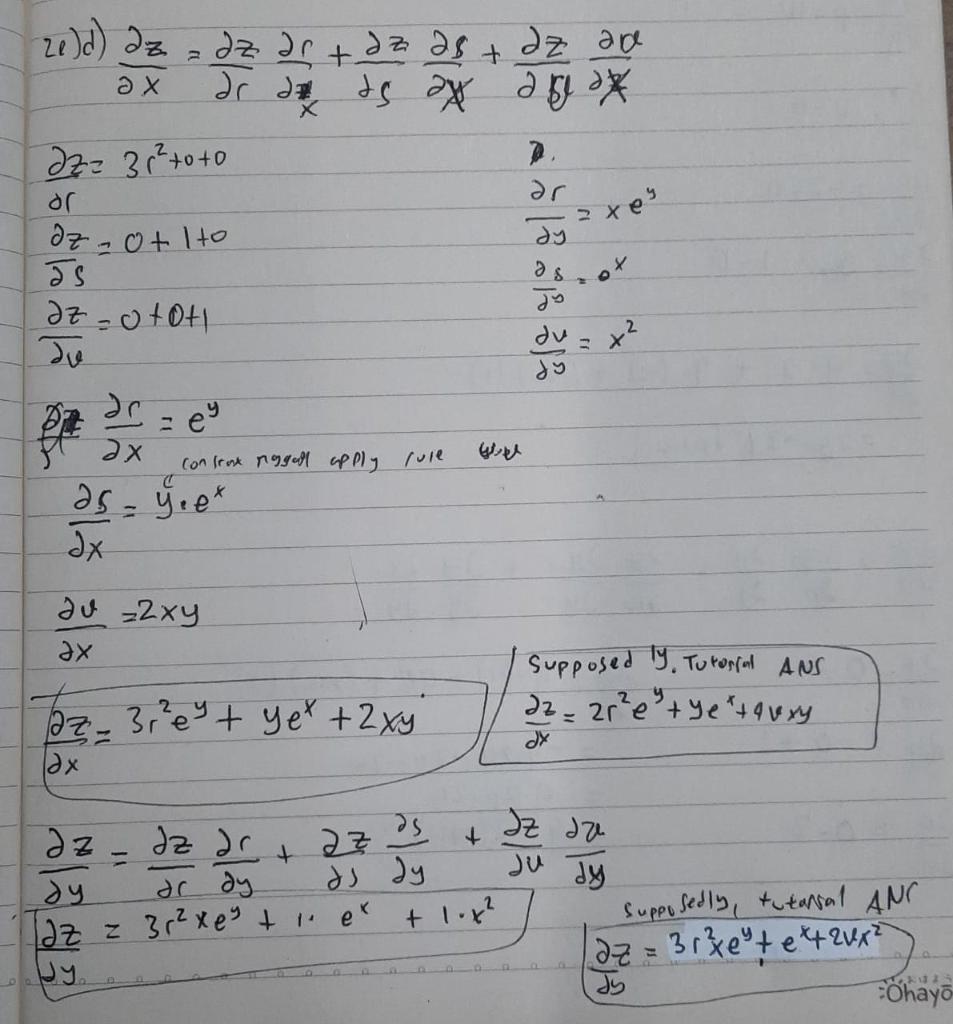 2e)d) ∂z/∂x = ∂z/∂r ∂r/∂x + ∂z/∂s ∂s/∂x + ∂z/∂v ∂v/∂x
∂z/∂r = 3r²+0+0
∂z/∂s = 0+1+0
∂z/∂v = 0+0+1
∂r/∂y = xe^y
∂s/∂y = e^x
∂v/∂y = x²
∂r/∂x = e^y
apply rule
∂s/∂x = y·e^x
∂v/∂x = 2xy
∂z/∂x = 3r²e^y + ye^x + 2xy
Supposedly, Tutorial ANS
∂z/∂x = 2r²e^y + ye^x + 4vxy
∂z/∂y = ∂z/∂r ∂r/∂y + ∂z/∂s ∂s/∂y + ∂z/∂v ∂v/∂y
∂z/∂y = 3r²xe^y + 1·e^x + 1·x²
supposedly, tutorial ANS
∂z/∂y = 3r²xe^y + e^x + 2vx²
Ohayō